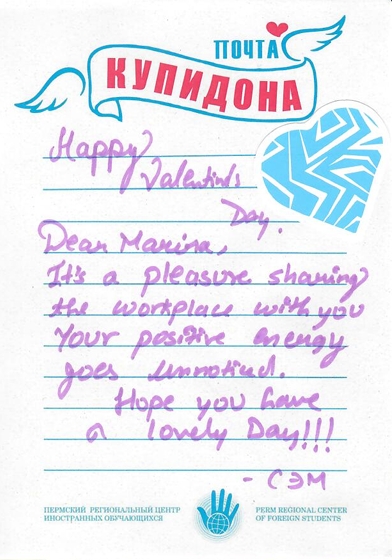 ПОЧТА
КУПИДОНА
Happy
Valentin's
Day.
Dear Marina,
It's a pleasure sharing
the workplace with you
Your positive energy
goes unnoticed.
Hope you have
a lovely Day!!!
- СЭМ
ПЕРМСКИЙ РЕГИОНАЛЬНЫЙ ЦЕНТР
ИНОСТРАННЫХ ОБУЧАЮЩИХСЯ
PERM REGIONAL CENTER
OF FOREIGN STUDENTS